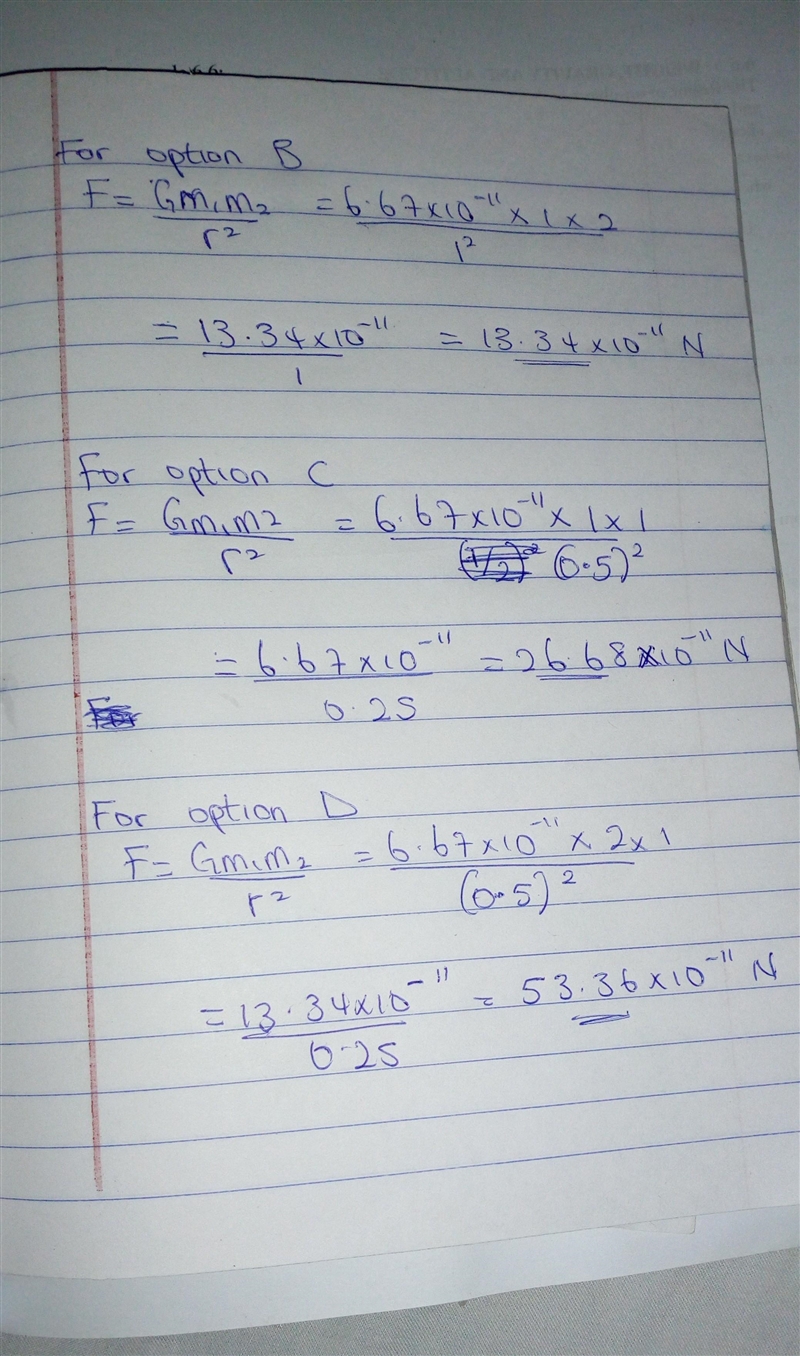 For option B
F = Gm₁m₂/r² = 6.67×10⁻¹¹ × 1 × 2/1²
= 13.34×10⁻¹¹/1 = 13.34×10⁻¹¹ N
For option C
F = Gm₁m2/r² = 6.67×10⁻¹¹ × 1 × 1/(0.5)²
= 6.67×10⁻¹¹/0.25 = 26.68×10⁻¹¹ N
For option D
F = Gm₁m₂/r² = 6.67×10⁻¹¹ × 2×1/(0.5)²
= 13.34×10⁻¹¹/0.25 = 53.36×10⁻¹¹ N